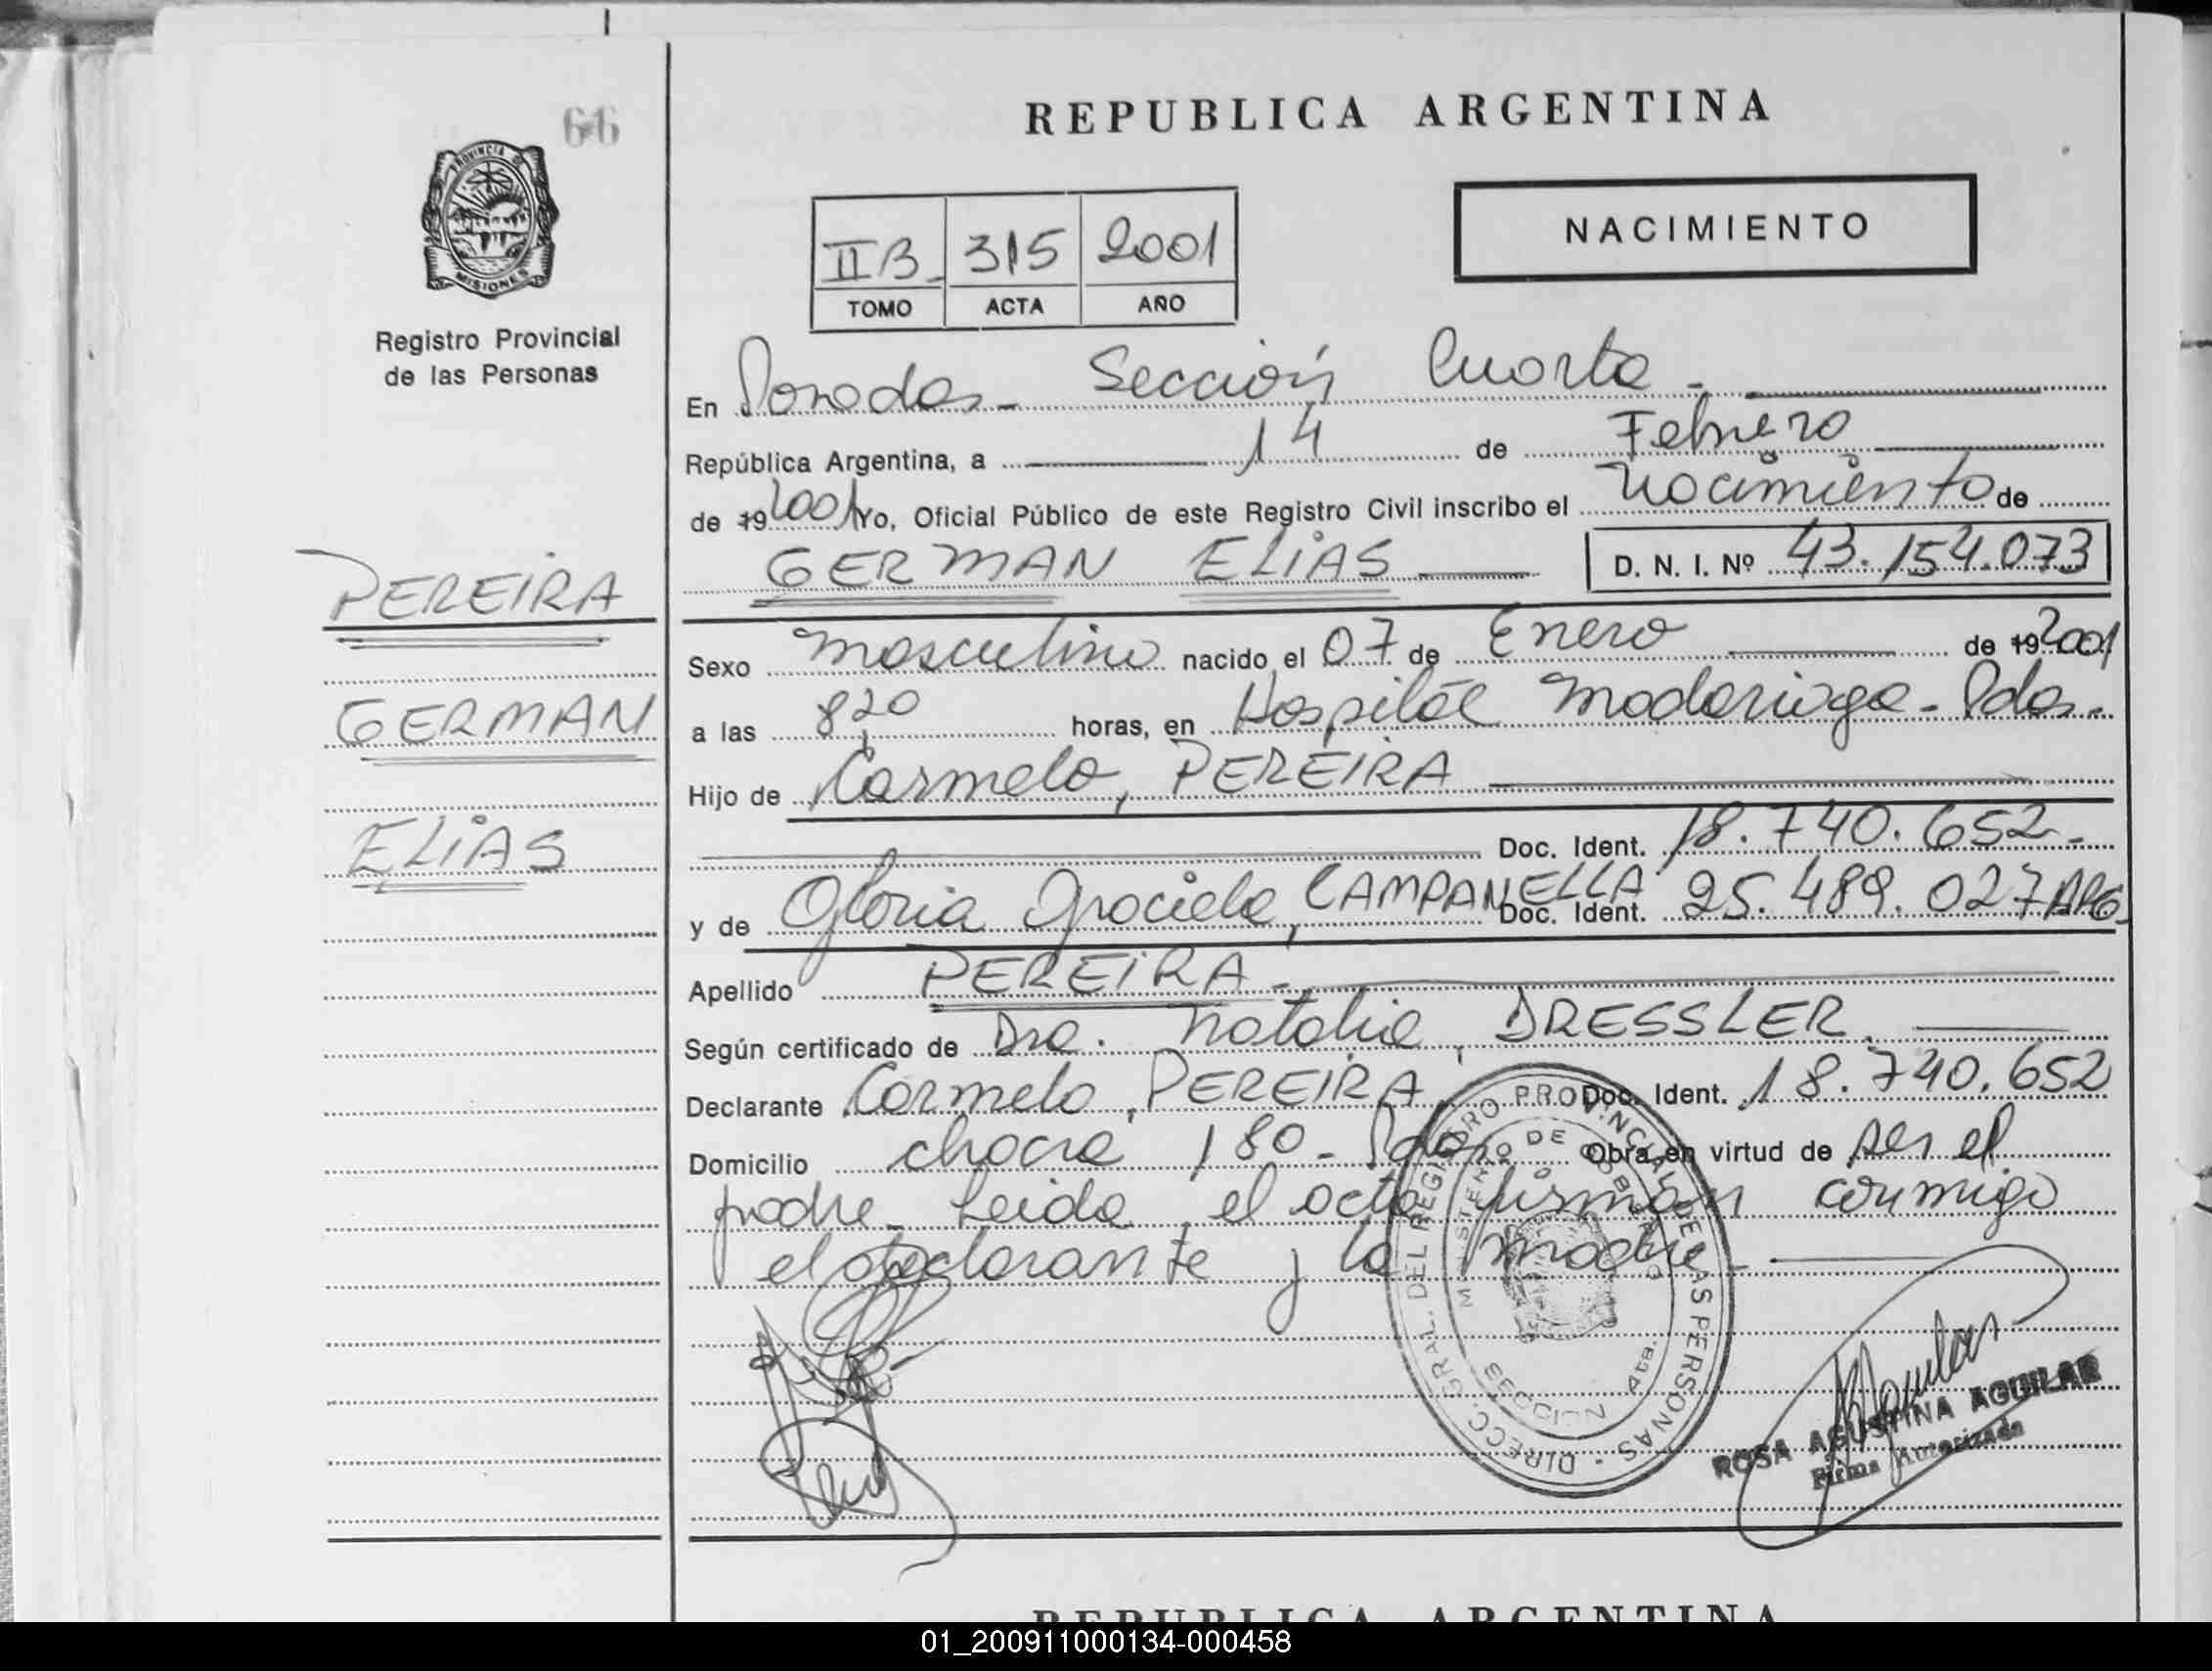 66
REPUBLICA ARGENTINA
PROVINCIA DE MISIONES
II B - 315 2001
TOMO ACTA AÑO
NACIMIENTO
Registro Provincial
de las Personas
En Posadas - Sección Cuarta -
República Argentina, a 14 de Febrero
de 19 2001 Yo, Oficial Público de este Registro Civil inscribo el Nacimiento de
GERMAN ELIAS D. N. I. Nº 43.154.073
PEREIRA
GERMAN
ELIAS
Sexo masculino nacido el 07 de Enero de 19 2001
a las 8,20 horas, en Hospital Madariaga - Pdas.
Hijo de Carmelo, PEREIRA
Doc. Ident. 18.740.652 -
y de Gloria Graciela, CAMPANELLA Doc. Ident. 25.489.027 ARG.
Apellido PEREIRA -
Según certificado de Dra. Natalia, DRESSLER.
Declarante Carmelo, PEREIRA Doc. Ident. 18.740.652
Domicilio chacra 180 - Pdas. Obra en virtud de ser el
padre - Leida el acta firman conmigo
el declarante y la madre
DIRECC. GRAL. DEL REGISTRO PROVINCIAL DE LAS PERSONAS
MINISTERIO DE GOBIERNO
SECCION 4ta.
ROSA AGUSTINA AGUILAR
Firma Autorizada
REPUBLICA ARGENTINA
01_200911000134-000458